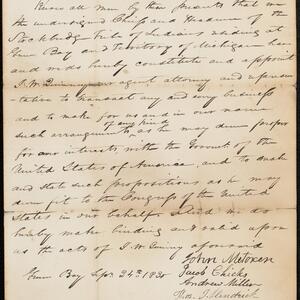 Know all men by these presents that we
the undersigned Chiefs and Headmen of the
Stockbridge tribe of Indians residing at
Green Bay and Territory of Michigan have
and with hereby constitute and appoint
J. W. Quinney our agent attorney and representa-
tative to transact any and every business
and to make for us and in our name
such arrangements of any kind as he may deem proper
for our interests with the Governt of the
United States of America, and to make
and state such propositions as he may
deem fit to the Congress of the United
States in our behalf. And we do
hereby make binding and valid upon us
the acts of J. W. Quinney aforesaid
Green Bay Sept 24th
John Metoxen
Jacob Chicks
Andrew Miller
Thos. J. Hendrick